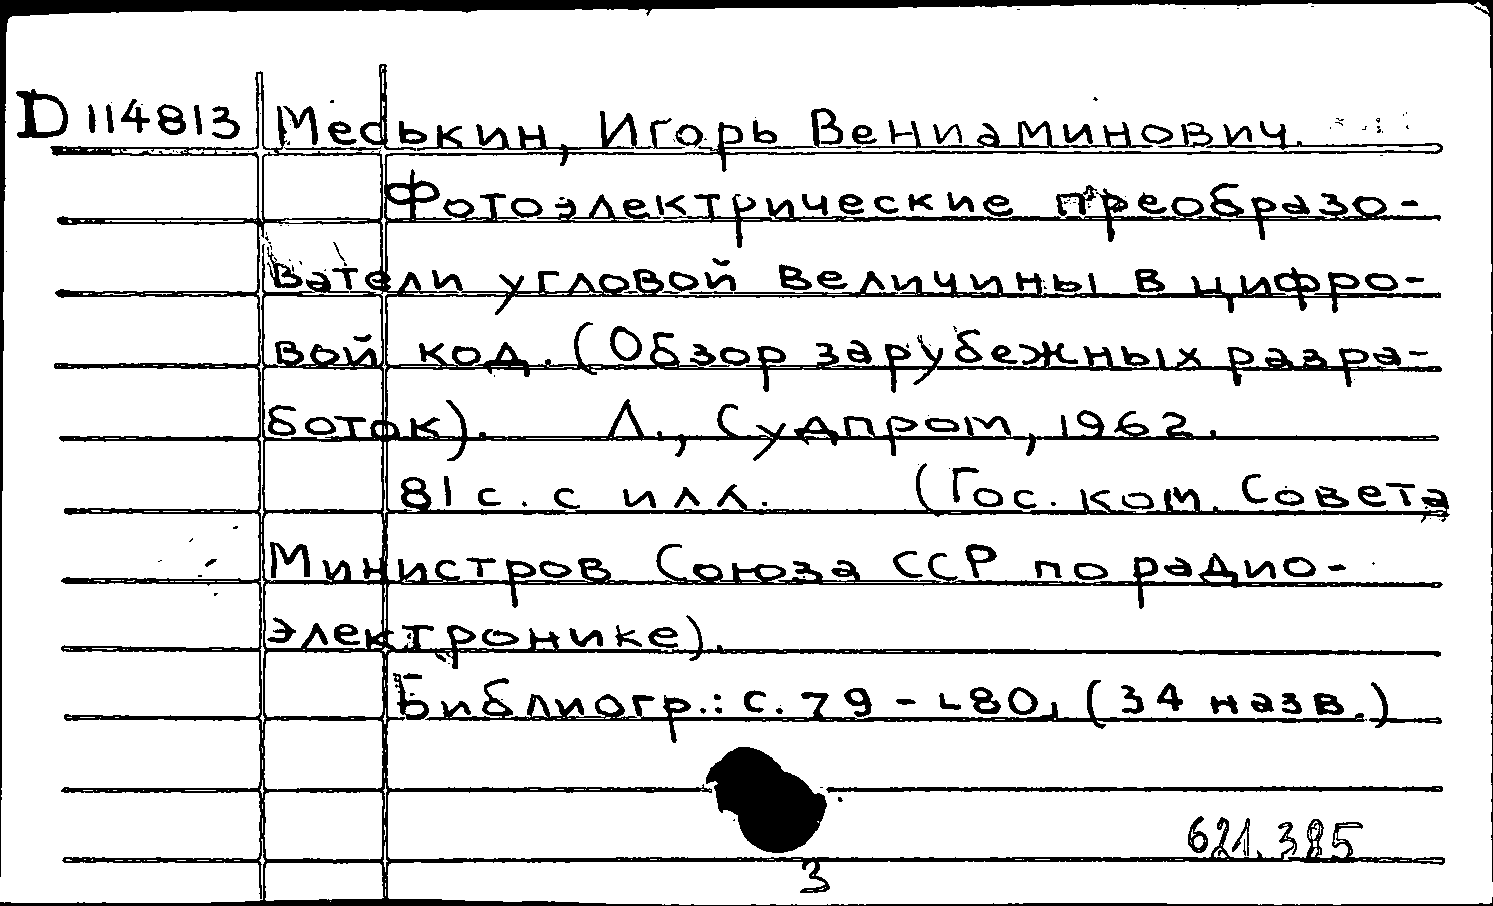 D 114813 Медькин, Игорь Вениаминович.
Фотоэлектрические преобразо-
ватели угловой величины в цифро-
вой код. (Обзор зарубежных разра-
боток). Л., Судпром, 1962.
81 с. с илл. (Гос. ком. Совета
Министров Союза ССР по радио-
электронике).
Библиогр.: с. 79 - 80, (34 назв.)
621.385
3